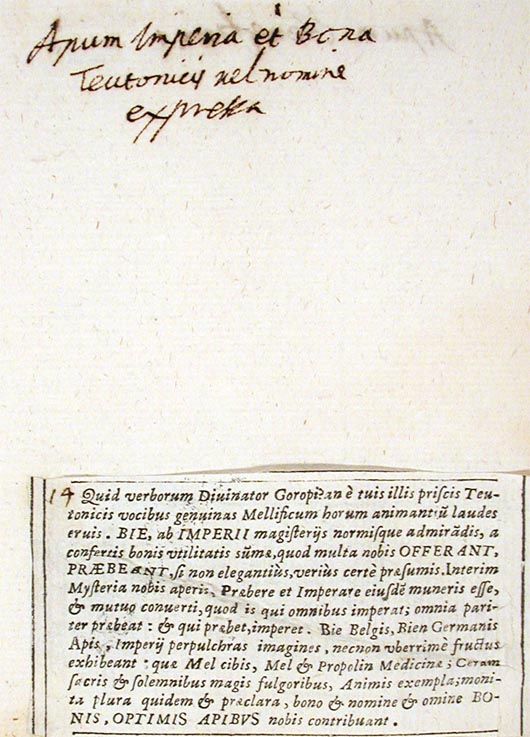 Apum Imperia et Bona
Teutonicis vel nomine
expressa
14 Quid verborum Diuinator Goropi an è tuis illis priscis Teu-
tonicis vocibus genuinas Mellificum horum animantiũ laudes
eruis. BIE, ab IMPERII magisterijs normisque admirãdis, a
confertis bonis vtilitatis sũmæ, quod multa nobis OFFERANT,
PRÆBEANT, si non elegantiùs, verius certè præsumis. Interim
Mysteria nobis aperis, Præbere et Imperare eiusdẽ muneris esse,
& mutuo conuerti, quod is qui omnibus imperat; omnia pari-
ter præbeat: & qui præbet, imperet. Bie Belgis, Bien Germanis
Apis, Imperij perpulchras imagines, necnon vberrimè fructus
exhibeant: quæ Mel cibis, Mel & Propolin Medicinæ; Ceram
sacris & solemnibus magis fulgoribus, Animis exempla; moni-
ta plura quidem & præclara, bono & nomine & omine BO-
NIS, OPTIMIS APIBVS nobis contribuant.